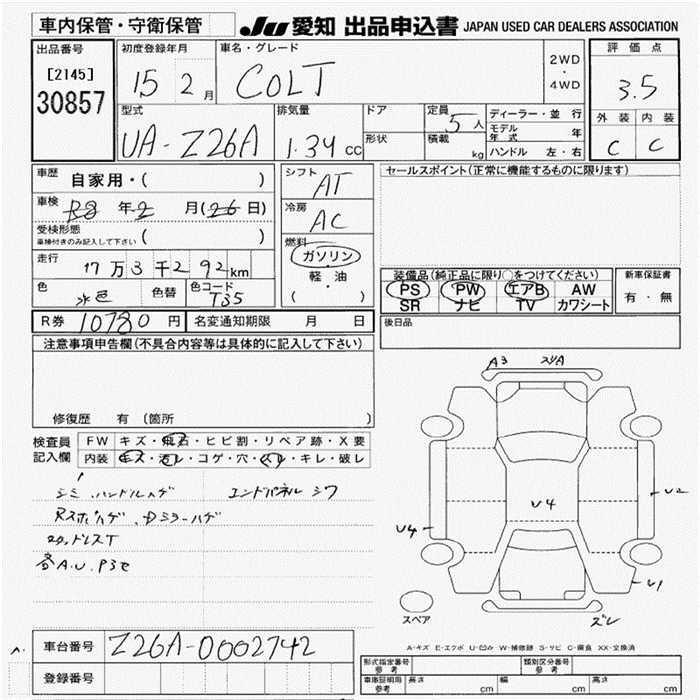 車内保管・守衛保管 JU 愛知 出品申込書 JAPAN USED CAR DEALERS ASSOCIATION
出品番号 初度登録年月 車名・グレード 評価点
[2145] 15 2月 COLT 2WD・4WD 3.5
30857
型式 排気量 ドア 定員 5人 ディーラー・並行 外装 内装
UA-Z26A 1.34cc 形状 積載 kg モデル年式 年 C C
ハンドル 左・右
車歴 自家用・( ) シフト AT セールスポイント(正常に機能するものに限ります)
車検 R8年2月(26日) 冷房 AC
受検形態
車検付きのみ記入して下さい ( )
燃料
ガソリン
軽・油
( )
走行 17万3千292km
色 水色 色替 色コード T35
装備品(純正品に限り○をつけてください) 新車保証書
PS PW エアB AW 有・無
SR ナビ TV カワシート
R券 10780円 名変通知期限 月 日 後日品
注意事項申告欄(不具合内容等は具体的に記入して下さい)
修復歴 有 (箇所 )
検査員記入欄 FW キズ・飛石・ヒビ割・リペア跡・X要
内装 キズ・汚レ・コゲ・穴・スレ・キレ・破レ
シミ、ハンドルハゲ エンドパネルシワ
Rスポハゲ、Dミラーハゲ
A.U.P3セ
A3 スリA
U2
U4
U4
U1
ズレ
スペア
A-キズ E-エクボ U-凹み W-補修跡 S-サビ C-腐食 XX-交換済
車台番号 Z26A-0002742
登録番号
形式指定番号 参考 類別区分番号 参考
車庫証明用 参考 長さ cm 幅 cm 高さ cm